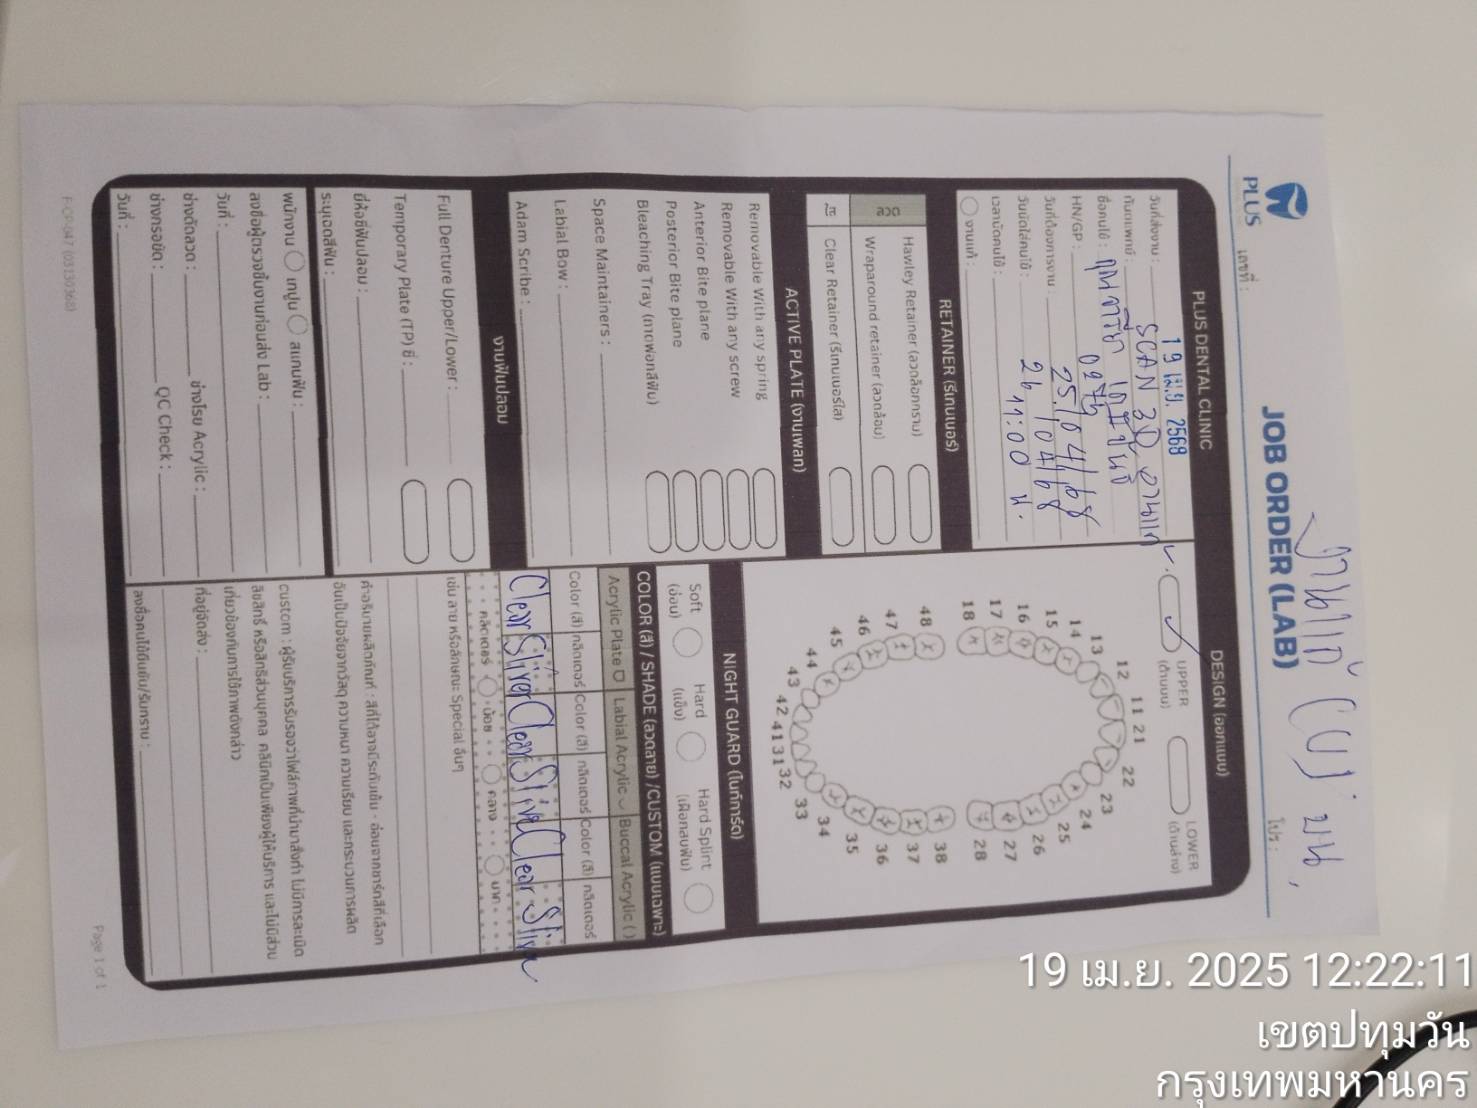 งานแก้ (U) บน,
PLUS
JOB ORDER (LAB)
เลขที่ :
โปร :
PLUS DENTAL CLINIC
วันที่ส่งงาน : 19 เม.ย. 2568
ทันตแพทย์ : SCAN 3D งานแก้
ชื่อคนไข้ :
HN/GP : 0275
วันที่ต้องการงาน : 25/04/68
วันนัดใส่คนไข้ : 26/04/68
เวลานัดคนไข้ : 11:00 น.
งานแก้ :
RETAINER (รีเทนเนอร์)
ลวด
Hawley Retainer (ลวดล็อกกราม)
Wraparound retainer (ลวดล้อม)
ใส
Clear Retainer (รีเทนเนอร์ใส)
ACTIVE PLATE (งานเพลท)
Removable With any spring
Removable With any screw
Anterior Bite plane
Posterior Bite plane
Bleaching Tray (ถาดฟอกสีฟัน)
Space Maintainers :
Labial Bow :
Adam Scribe :
งานฟันปลอม
Full Denture Upper/Lower :
Temporary Plate (TP) ซี่ :
ยี่ห้อซี่ฟันปลอม :
ระบุเฉดสีฟัน :
พนักงาน เทปูน สแกนฟัน :
ลงชื่อผู้ตรวจชิ้นงานก่อนส่ง Lab :
วันที่ :
ช่างดัดลวด : ช่างโรย Acrylic :
ช่างกรอขัด : QC Check :
วันที่ :
DESIGN (ออกแบบ)
UPPER
(ด้านบน)
LOWER
(ด้านล่าง)
11 21
12 22
13 23
14 24
15 25
16 26
17 27
18 28
48 38
47 37
46 36
45 35
44 34
43 33
42 41 31 32
NIGHT GUARD (ไนท์การ์ด)
Soft
(อ่อน)
Hard
(แข็ง)
Hard Splint
(เฝือกสบฟัน)
COLOR (สี) / SHADE (ลวดลาย) /CUSTOM (แบบเฉพาะ)
Acrylic Plate Labial Acrylic Buccal Acrylic ( )
Color (สี) กลิตเตอร์ Color (สี) กลิตเตอร์ Color (สี) กลิตเตอร์
Clear Sliver Clear Slive Clear Sliver
กลิตเตอร์ น้อย กลาง มาก
เช่น ลาย หรือลักษณะ Special อื่นๆ
คำอธิบายผลิตภัณฑ์ : สีที่ได้อาจมีระดับเข้ม - อ่อนจากชาร์ทสีที่เลือก
อันเป็นปัจจัยจากวัสดุ ความหนา ความเรียบ และกระบวนการผลิต
custom : ผู้รับบริการรับรองว่าไฟล์ภาพที่นำมาสั่งทำ ไม่มีการละเมิด
ลิขสิทธิ์ หรือสิทธิส่วนบุคคล คลินิกเป็นเพียงผู้ให้บริการ และไม่มีส่วน
เกี่ยวข้องกับการใช้ภาพดังกล่าว
ที่อยู่จัดส่ง :
ลงชื่อคนไข้ยืนยัน/รับทราบ :
F-OP-047 (03130368)
Page 1 of 1
19 เม.ย. 2025 12:22:11
เขตปทุมวัน
กรุงเทพมหานคร